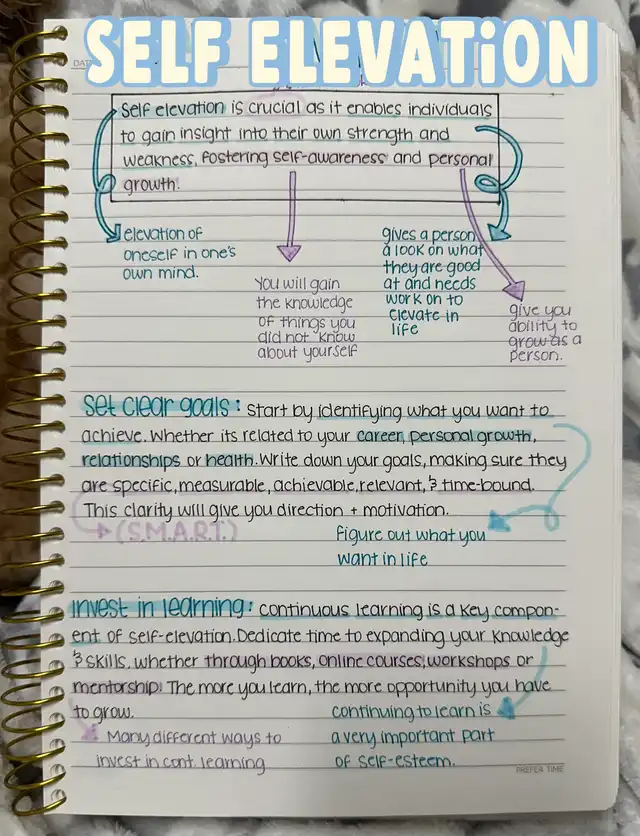 SELF ELEVATiON
DAT
Self elevation is crucial as it enables individuals
to gain insight into their own strength and
weakness, fostering self-awareness and personal
growth.
elevation of
oneself in one's
own mind.
You will gain
the knowledge
of things you
did not know
about yourself
gives a person
a look on what
they are good
at and needs
work on to
elevate in
life
give you
ability to
grow as a
person.
Set clear goals: Start by identifying what you want to
achieve. Whether its related to your career, personal growth,
relationships or health. Write down your goals, making sure they
are specific, measurable, achievable, relevant, & time-bound.
This clarity will give you direction + motivation.
(S.M.A.R.T.)
Figure out what you
want in life
invest in learning: continuous learning is a key compon-
ent of self-elevation. Dedicate time to expanding your knowledge
& skills, whether through books, online courses, workshops or
mentorship. The more you learn, the more opportunity you have
to grow.
Many different ways to
invest in cont. learning
continuing to learn is
a very important part
of self-esteem.
PREFER TIME